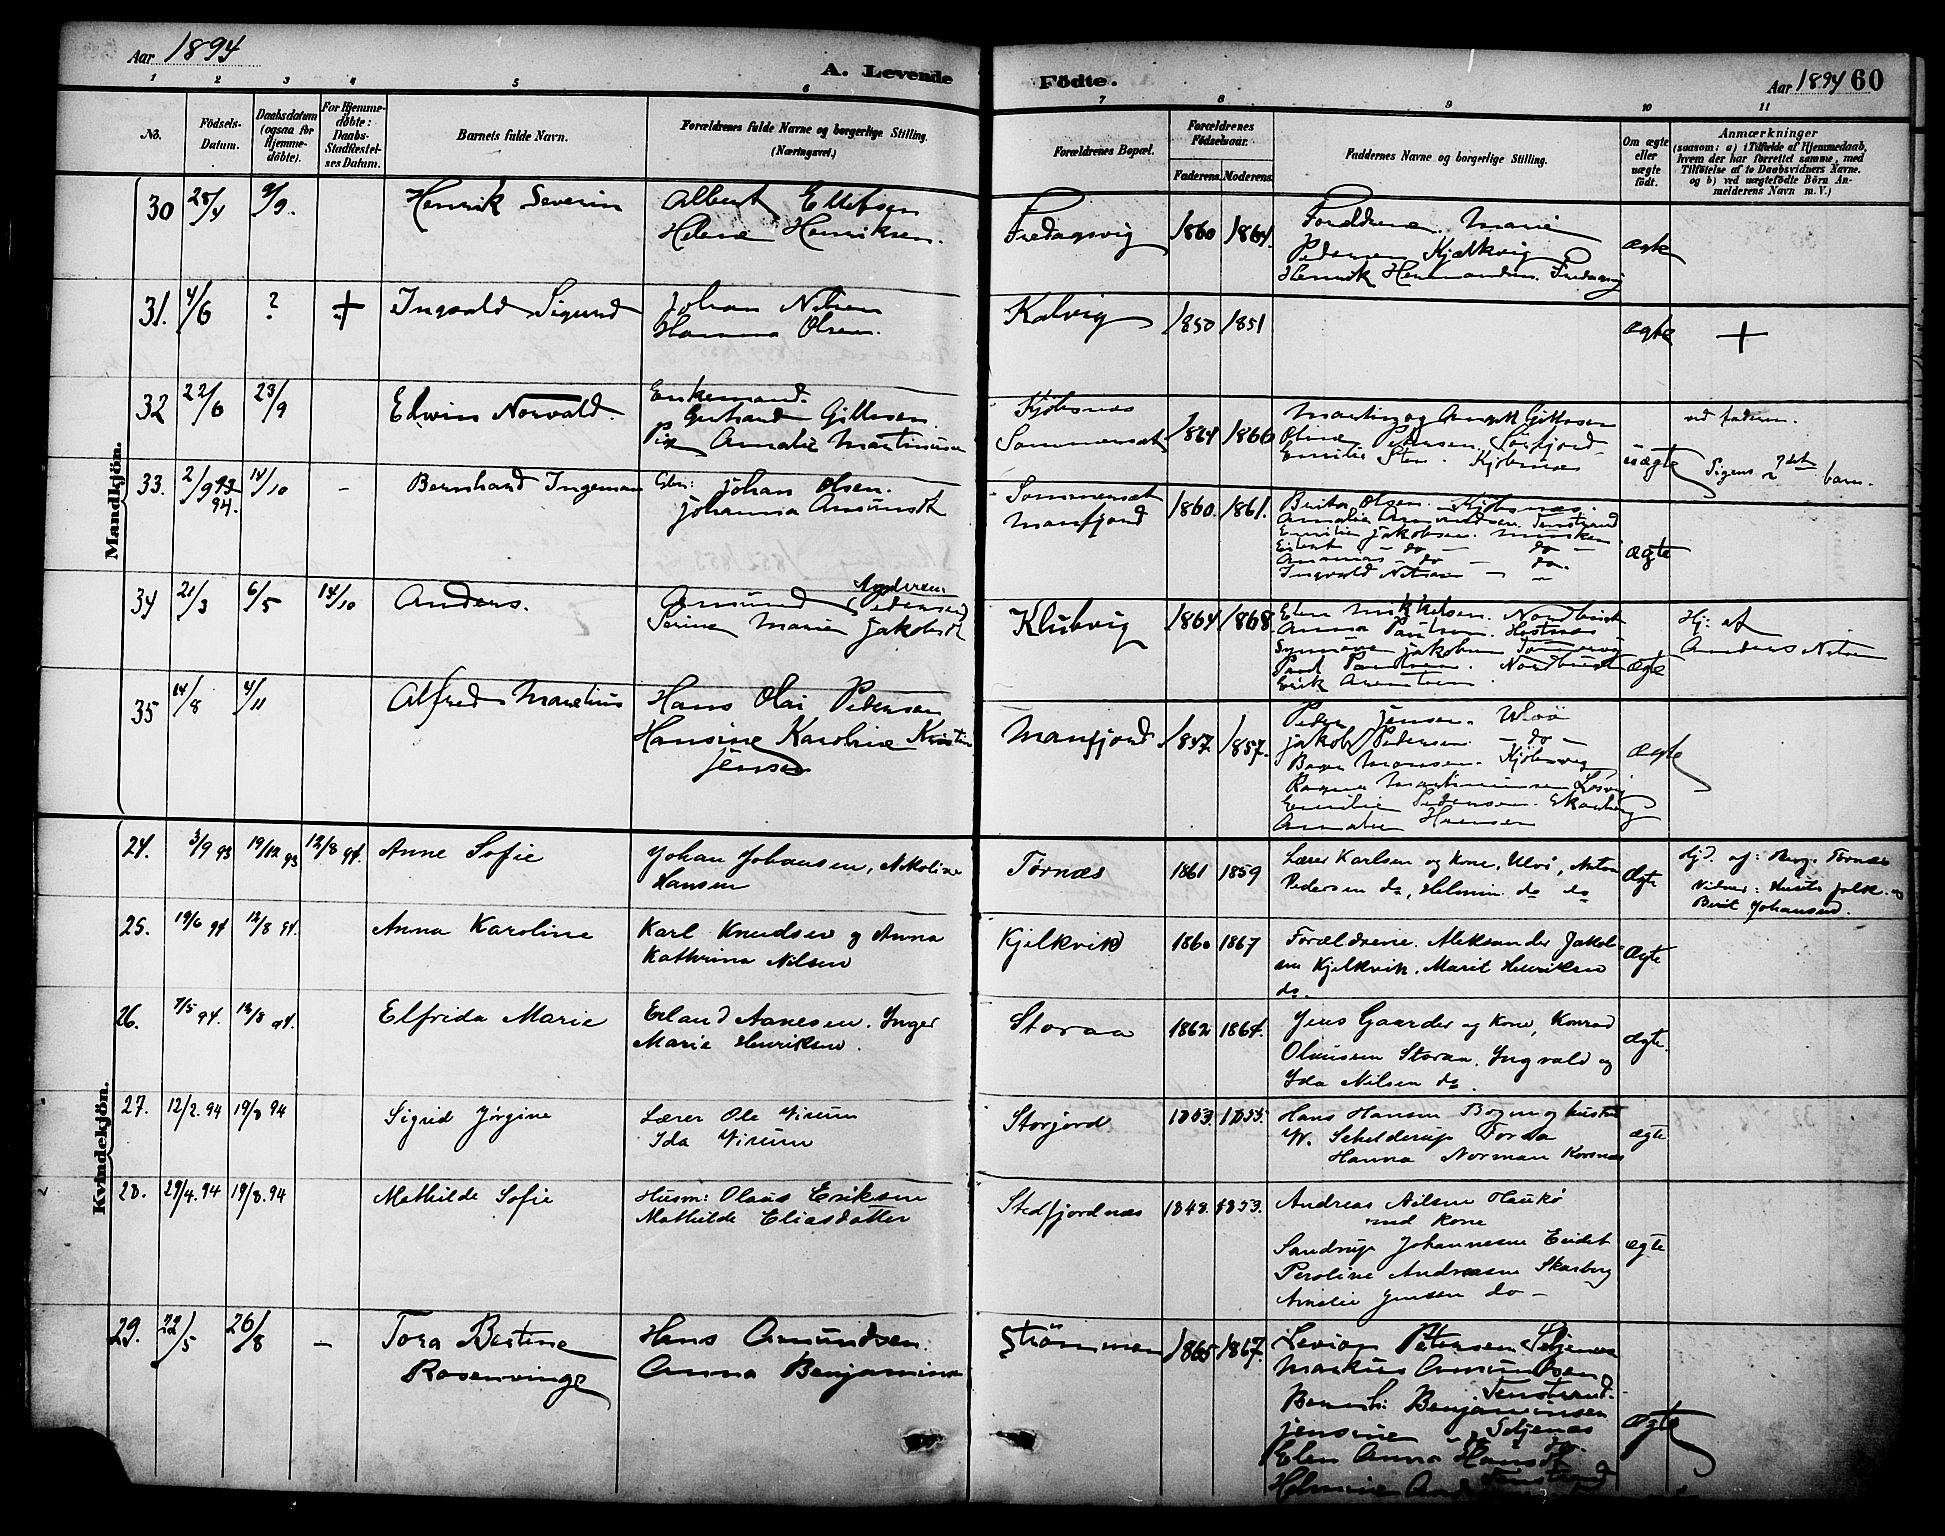 Aar 1894
A. Levende
Födte.
Aar 1894 60
1 2 3 4 5 6 7 8 9 10 11
No.
Födsels-
Datum.
Daabsdatum
(ogsaa for
Hjemme-
döbte).
For Hjemme-
döbte:
Daabs-
Stadfæstel-
ses Datum.
Barnets fulde Navn.
Forældrenes fulde Navne og borgerlige Stilling.
(Næringsvei.)
Forældrenes Bopæl.
Forældrenes
Födselsaar.
Faderens. Moderens.
Faddernes Navne og borgerlige Stilling.
Om ægte
eller
uægte
födt.
Anmærkninger
(saasom: a) i Tilfælde af Hjemmedaab,
hvem der har forrettet samme, med
Tilföielse af to Daabsvidners Navne.
og b) ved uægtefödte Börn An-
melderens Navn m. V.)
Mandkjön.
30 28/4 9/9. Henrik Severin
Albert Ellefsen
Helene Henriksen.
Fredagsvig 1860 1864.
Forældrene. Marie
Pedersen Kjælkvig
Henrik Fredagsvig
ægte
31. 4/6 ? + Ingvald Sigurd
Johan Nilsen
Hanna Olsen.
Kalvig 1850 1851 ægte +
32 22/6 23/9 Edwin Norvald
Enkemand.
Gerhard Gjillesen
Pix Amalie Martinusen
Kjøbsnæs
Sommerset 1864 1866
Martin og
Oline Petersen Sørfjord
Emilie Sten. Kjøbsnæs
uægte
ved faderen.
Pigens 2det barn.
33. 2/9 93 14/10 - Bernhard Ingeman
94.
Johan Olsen.
Johanna Amundsdt
Sommerset
Manfjord 1860. 1861.
Berta Olsen. Kjøbsnæs.
Amalie Amundsen. Tenstrand
Emilie Jakobsen. Musken
- do - do -
- do - do.
Ingvald Nilsen - " -
ægte
34 21/3 6/5 14/10 Anders.
Amund Pedersen
Serine Marie Jakobsdt
Klubvig 1864 1868
Elen Mikkelsen. Nordbugt
Anna Paulsen. Hestnæs
Synnøve Jakobsen
Paul Paulsen. Nordbugt
Erik
ægte
Hj: af
Anders Nilsen
35 14/8 4/11 Alfred Maretius
Hans Olai Pedersen
Hansine Karoline Kristine
Jensen
Manfjord 1857. 1857.
Peder Jensen. Ulvø
Jakob Pedersen - do -
Hansen. Kjøbsvig
Ragna Martinusen Losvig
Emilie Pedersen. Skarberg
Amalie Hansen
ægte
Kvindekjön.
24. 3/9 93 19/12 93 12/8 94. Anne Sofie
Johan Johansen, Nikoline
Hansen
Tørnæs 1861 1859
Lærer Karlsen og Kone, Ulvø, Anton
Pedersen do, Helmin do do
Ægte
Hjd. af: Berg. Tørnæs
Vidner: Husets folk og
Berit Johansen.
25. 19/6 94 12/8 94. Anna Karoline
Karl Knudsen og Anna
Kathrina Nilsen
Kjelkvik 1860 1867
Forældrene. Aleksander Jakob-
sen Kjelkvik, Marit Henriksen
do.
Ægte
26. 7/5 94. 12/8 94. Elfrida Marie
Erland Aanesen. Inger
Marie Henriksen.
Storaa 1862 1864.
Jens Gaarder og Kone, Konrad
Olaussen Storaa. Ingvald og
Ida Nilsen do.
ægte.
27. 12/2. 94 19/8 94 Sigrid Jørgine
Lærer Ole Virum
Ida Virum
Storjord 1853 1855.
Hans Hansen Bogen og hustru
W. Schelderup Torda
Hanna Norman Korsnæs
ægte
28. 29/4. 94 19/8. 94 Mathilde Sofie
Husm: Olaus Eriksen
Mathilde Eliasdatter
Stedfjordnæs 1848. 1853.
Andreas Nilsen Haukø
med Kone
Sandrup Johannesen Eidet
Peroline Andreasen Skarberg
Amalie Jensen do -
ægte
29. 22/5 26/8 - Tora Bertine
Rosenvinge
Hans Amundsen.
Anna Benjaminsen
Strømmen 1865 1867.
Petersen Seljenæs
Markus Amundsen
Tenstrand.
Benjaminsen
Jensine - " - Seljenæs
Elen Anna Hansdt do.
Helmine Tenstrand
ægte